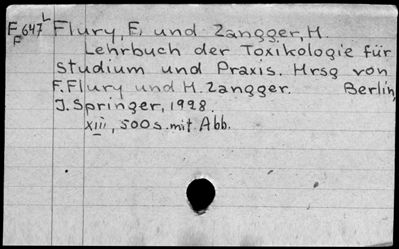 F 647 L Flury, F. und Zangger, H.
F Lehrbuch der Toxikologie für
Studium und Praxis. Hrsg von
F. Flury und H. Zangger. Berlin,
J. Springer, 1928.
XIII, 500 s. mit Abb.